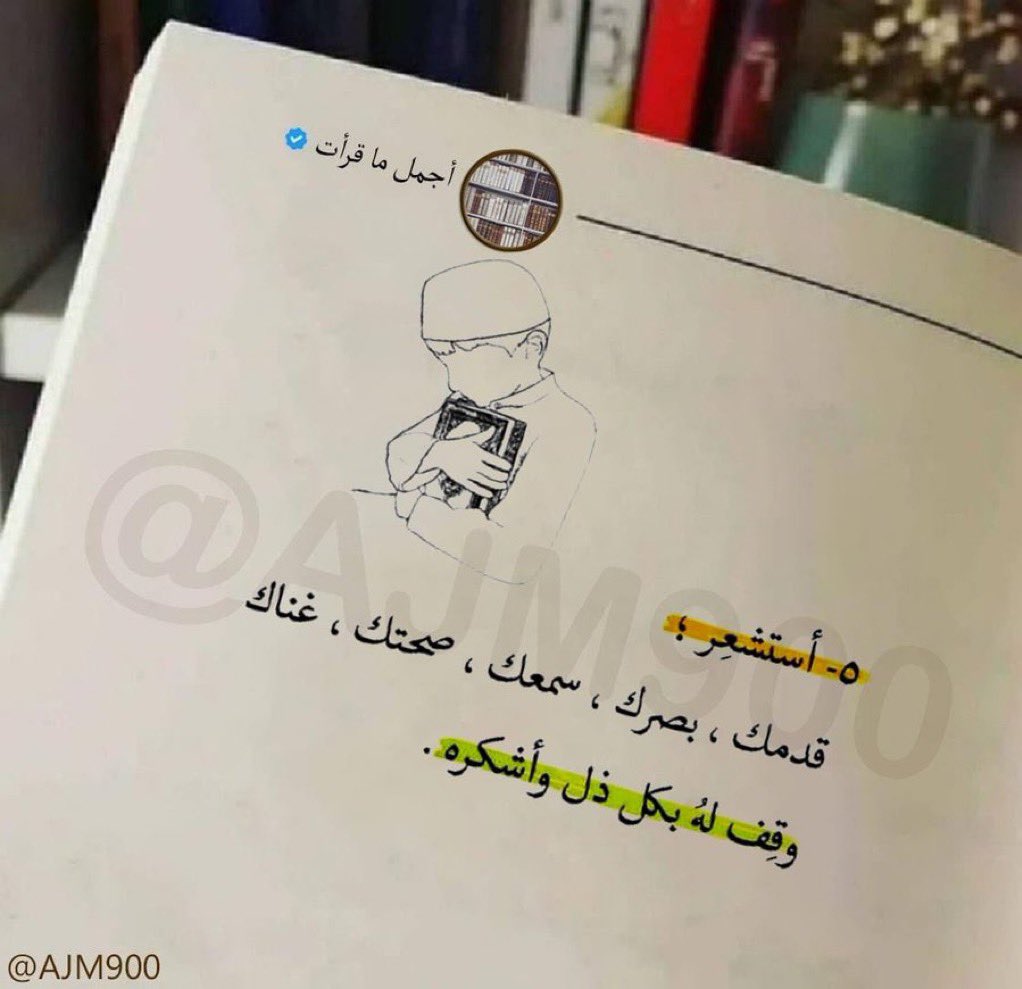 أجمل ما قرأت
@AJM900
٥- أستشعِر ؛
قدمك ، بصرك ، سمعك ، صحتك ، غناك
وقِف لهُ بكل ذل وأشكره .
@AJM900